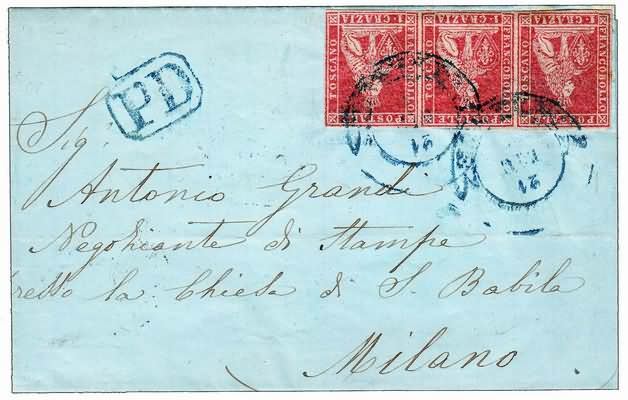 FRANCOBOLLO POSTALE TOSCANO 1 GRAZIA
FRANCOBOLLO POSTALE TOSCANO 1 GRAZIA
FRANCOBOLLO POSTALE TOSCANO 1 GRAZIA
PD
21
21
Sig.
Antonio Grandi
Negoziante di Stampe
presso la Chiesa di S. Babila
Milano